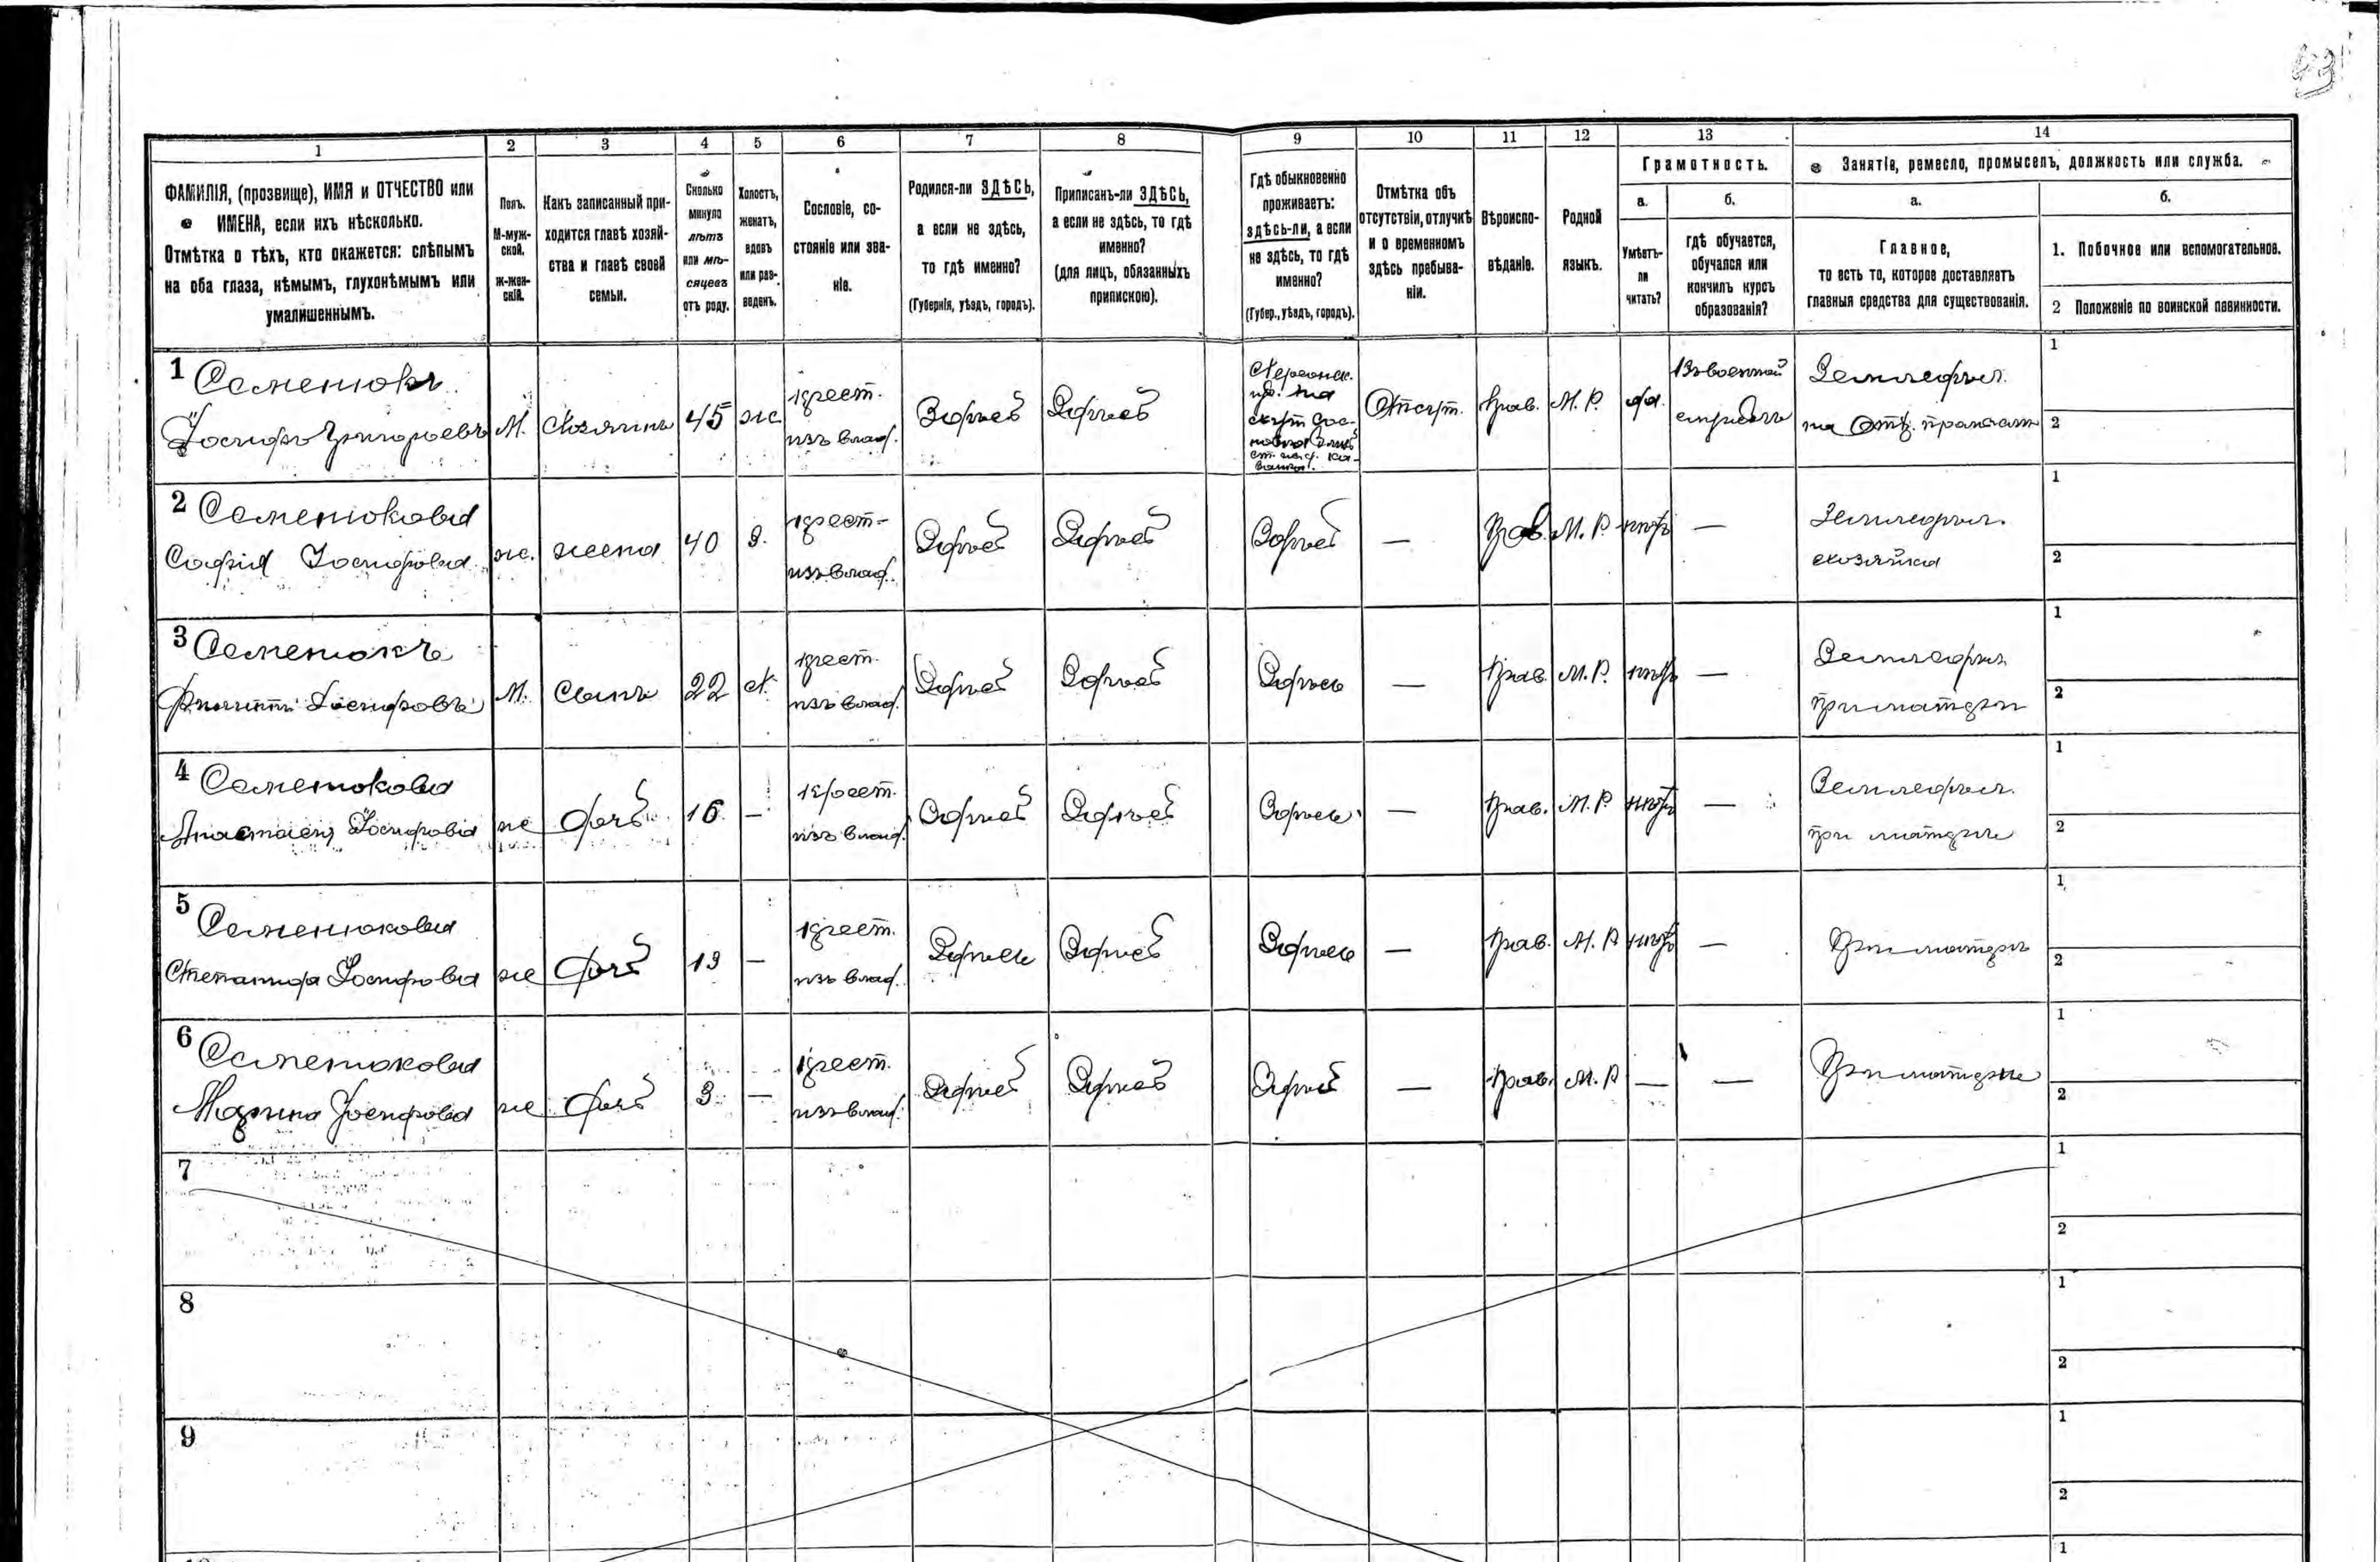 63
1 2 3 4 5 6 7 8 9 10 11 12 13 14
ФАМИЛІЯ, (прозвище), ИМЯ и ОТЧЕСТВО или
ИМЕНА, если ихъ нѣсколько.
Отмѣтка о тѣхъ, кто окажется: слѣпымъ
на оба глаза, нѣмымъ, глухонѣмымъ или
умалишеннымъ.
Полъ.
М-муж-
ской.
ж-жен-
скій.
Какъ записанный при-
ходится главѣ хозяй-
ства и главѣ своей
семьи.
Сколько
минуло
лѣтъ
или мѣ-
сяцевъ
отъ роду.
Холостъ,
женатъ,
вдовъ
или раз-
веденъ.
Сословіе, со-
стояніе или зва-
ніе.
Родился-ли ЗДѢСЬ,
а если не здѣсь,
то гдѣ именно?
(Губернія, уѣздъ, городъ).
Приписанъ-ли ЗДѢСЬ,
а если не здѣсь, то гдѣ
именно?
(для лицъ, обязанныхъ
припискою).
Гдѣ обыкновенно
проживаетъ:
здѣсь-ли, а если
не здѣсь, то гдѣ
именно?
(Губер., уѣздъ, городъ).
Отмѣтка объ
отсутствіи, отлучкѣ
и о временномъ
здѣсь пребыва-
ніи.
Вѣроиспо-
вѣданіе.
Родной
языкъ.
Грамотность.
а.
Умѣетъ-
ли
читать?
б.
гдѣ обучается,
обучался или
кончилъ курсъ
образованія?
Занятіе, ремесло, промыселъ, должность или служба.
а.
Главное,
то есть то, которое доставляетъ
главныя средства для существованія.
б.
1. Побочное или вспомогательное.
2 Положеніе по воинской повинности.
1 Семенюкъ
Іосифъ Григорьевъ М. Хозяинъ 45 ж крест. изъ влад. Здѣсь Здѣсь Херсонск. Отсут. Прав. М. Р. да Въ военной службѣ Земледѣл. 1 2
2 Семенюкова
Софія Іосифова ж. жена 40 З. крест- изъ влад. Здѣсь Здѣсь Здѣсь — Прав. М. Р. нѣтъ — Земледѣл. хозяйка 1 2
3 Семенюкъ
Филиппъ Іосифовъ М. Сынъ 22 Х. крест. изъ влад. Здѣсь Здѣсь Здѣсь — Прав. М. Р. нѣтъ — Земледѣл. при матери 1 2
4 Семенюкова
Анастасія Іосифова ж дочь 16 — крест. изъ влад. Здѣсь Здѣсь Здѣсь — Прав. М. Р нѣтъ — Земледѣл. при матери 1 2
5 Семенюкова
Степанида Іосифова ж дочь 13 — крест. изъ влад. Здѣсь Здѣсь Здѣсь — Прав. М. Р нѣтъ — При матери 1 2
6 Семенюкова
Марина Іосифова ж дочь 3 — крест. изъ влад. Здѣсь Здѣсь Здѣсь — Прав. М. Р — — При матери 1 2
7 1 2
8 1 2
9 1 2
1